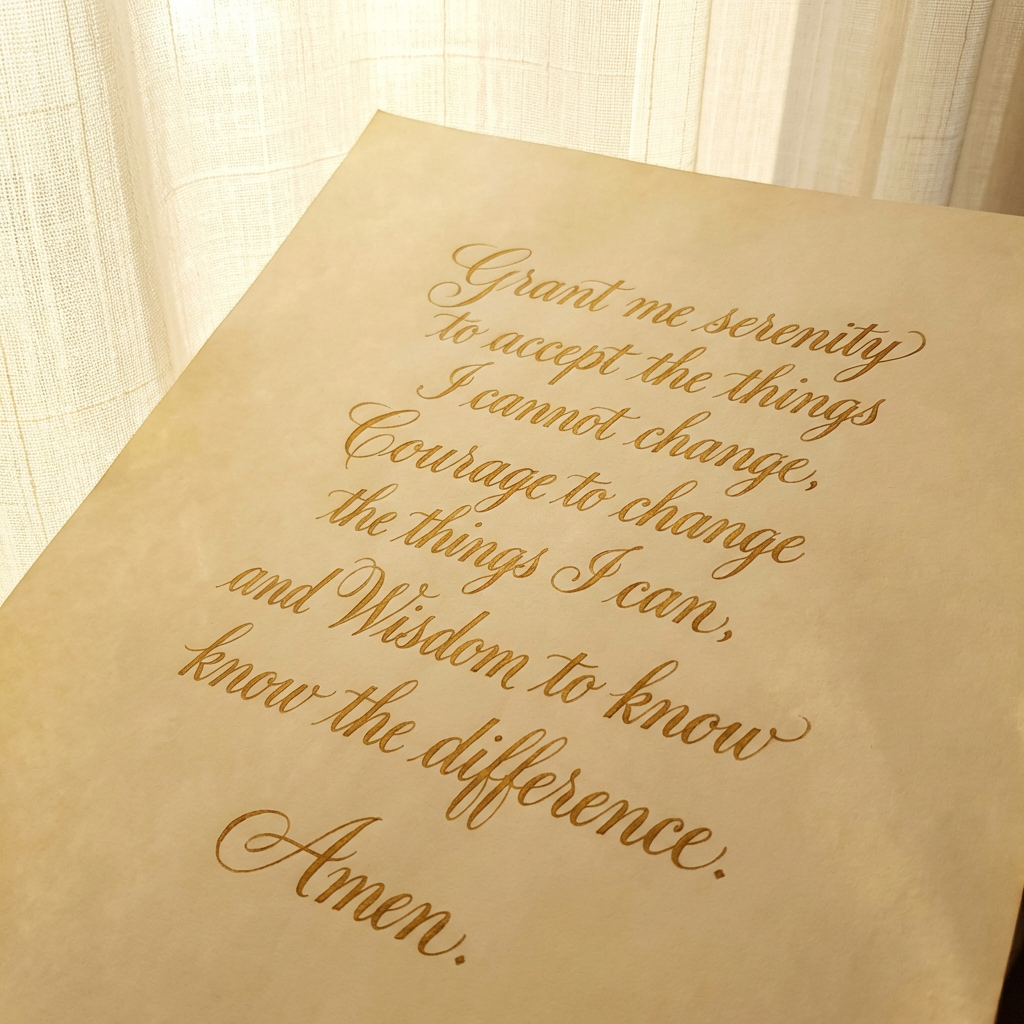 Grant me serenity
to accept the things
I cannot change,
Courage to change
the things I can,
and Wisdom to know
know the difference.
Amen.